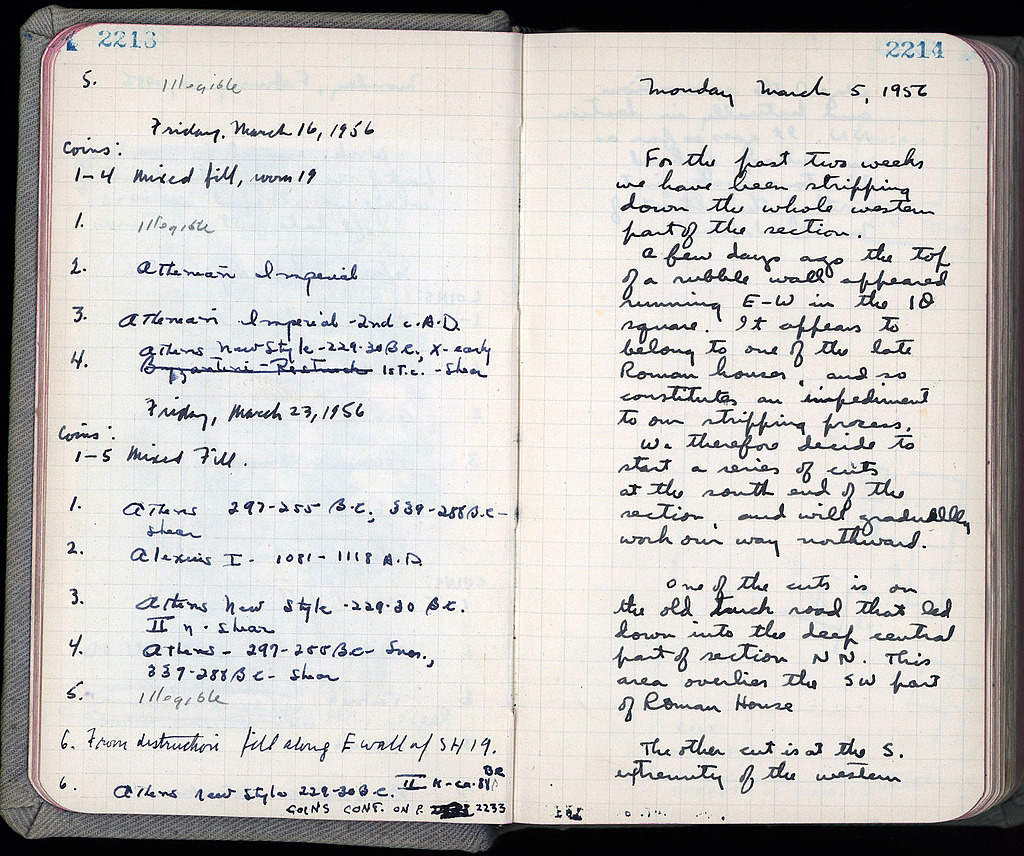 2213
5. Illegible
Friday, March 16, 1956
Coins:
1-4 Mixed fill, room 19
1. Illegible
2. Athenian Imperial
3. Athenian Imperial - 2nd c. A.D.
Athens New Style - 229-30 B.C., X - early
4. Byzantine - Restruck 1st c. - Shear
Friday, March 23, 1956
Coins:
1-5 Mixed Fill.
1. Athens 297-255 B.C., 339-288 B.C -
Shear
2. Alexius I - 1081 - 1118 A.D.
3. Athens New Style - 229-30 B.C.
II - Shear
4. Athens - 297-255 B.C -
339-288 B C - Shear
5. Illegible
6. From destruction fill along E wall of SH 19.
6. Athens New Style 229-30 B.C. II BC
COINS CONT. ON P. 2233
2214
Monday March 5, 1956
For the past two weeks
we have been stripping
down the whole western
part of the section.
A few days ago the top
of a rubble wall appeared
running E-W in the 18
square. It appears to
belong to one of the late
Roman houses, and so
constitutes an impediment
to our stripping process.
We therefore decide to
start a series of cuts
at the south end of the
section, and will gradually
work our way northward.
One of the cuts is on
the old truck road that led
down into the deep central
part of section NN. This
area overlies the SW part
of Roman House
The other cut is at the S.
extremity of the western